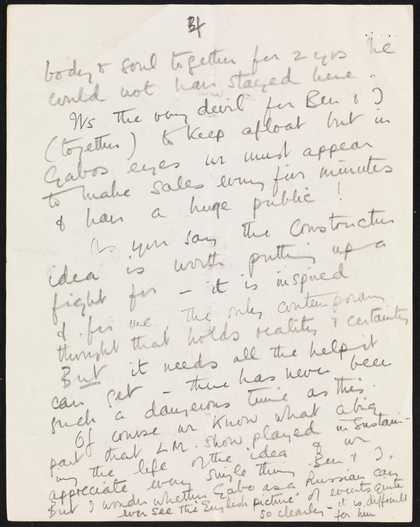 3/
body & soul together for 2 yrs he
could not have stayed here.
Its the very devil for Ben & I
(together) to keep afloat but in
Gabos eyes we must appear
to make sales every five minutes
& have a huge public!
As you say the Constructive
idea is worth putting up a
fight for – it is inspired
& for me the only contemporary
thought that holds reality & certainty
But it needs all the help it
can get – there has never been
such a dangerous time as this.
Of course we know what a big
part that L.M. show played in sustain-
ing the life of the idea & we
appreciate every single thing Ben & I.
But I wonder whether Gabo as a Russian can
ever see the English picture of events quite
so clearly – it is difficult
for him